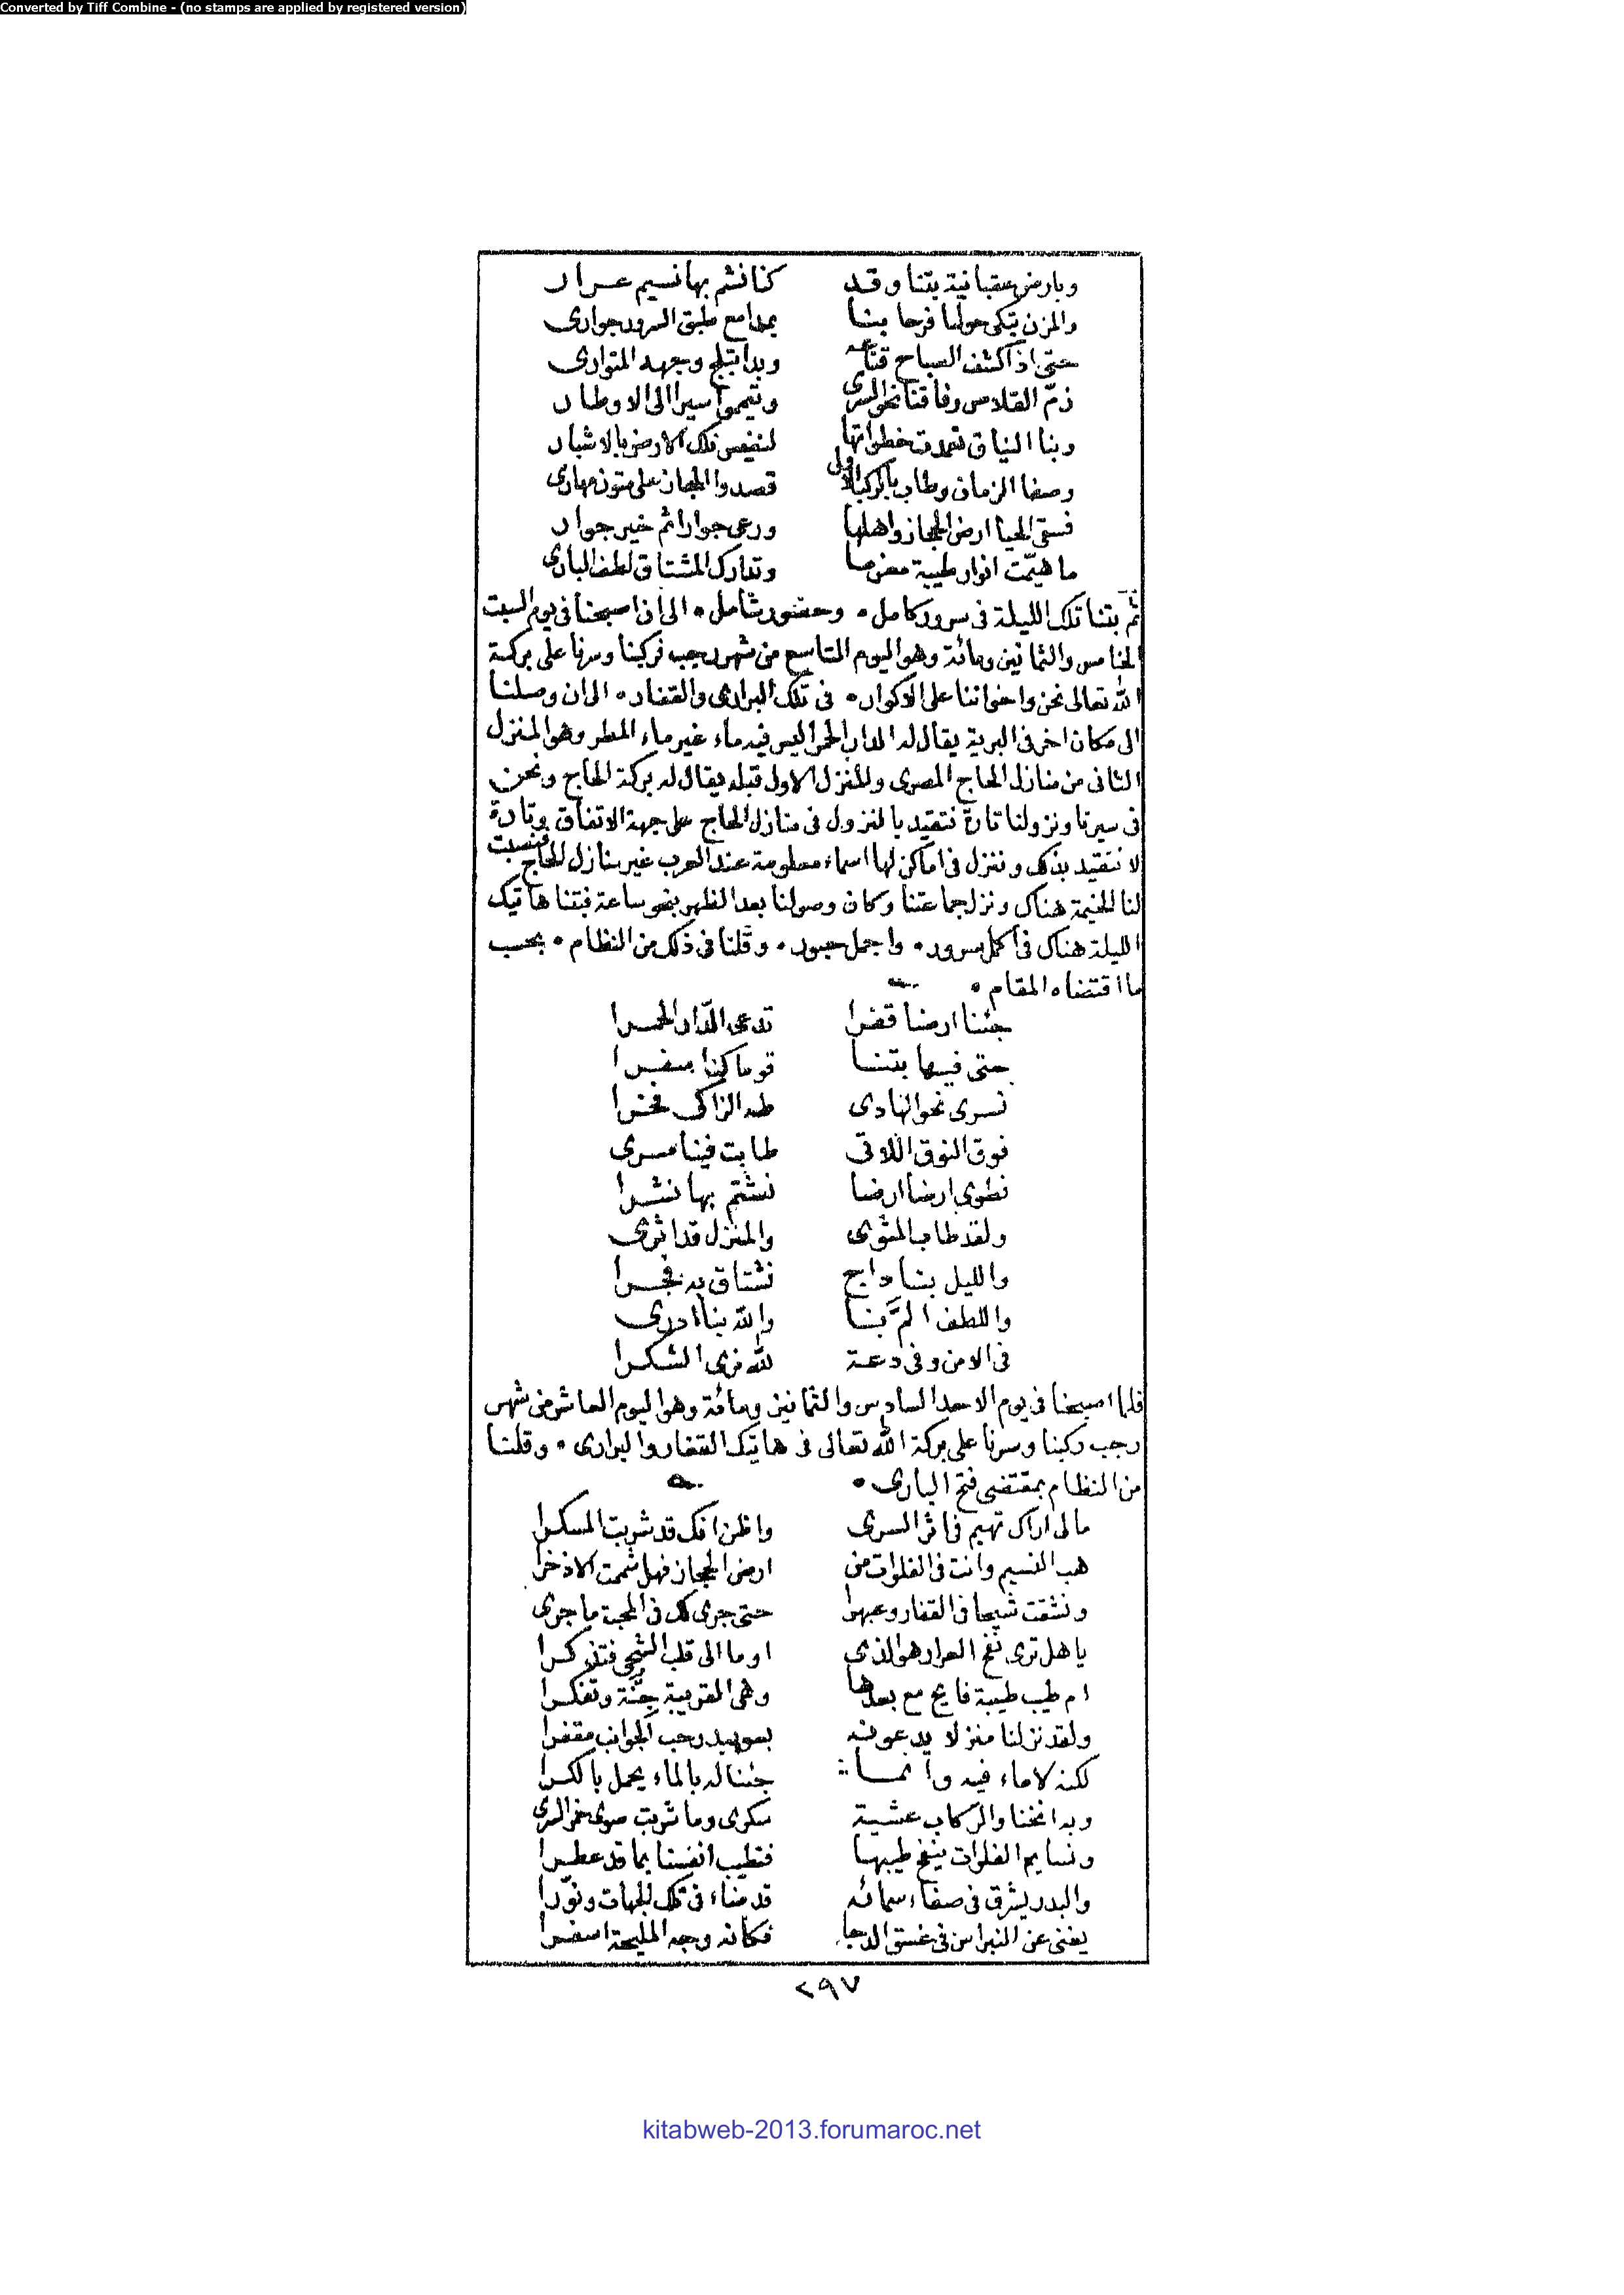 Converted by Tiff Combine - (no stamps are applied by registered version)
وبارض عقبانية بتنا وقد كنا نشم بها نسيم عرار
والمزن تبكى حولنا فرحا بنا بمدامع طبق السرور جوارى
حتى اذا كشف الصباح قناعه وبدا تبلج وجهه المتوارى
زم القلاص رفاقنا نحو السرى وتيمموا سيرا الى الاوطار
وبنا النياق تمددت خطواتها لنقيس تلك الارض بالاشبار
وصفا الزمان وطاب بالركب الاولى قصدوا الحجاز على متون مهارى
فسقى الحيا ارض الحجاز واهلها ورعى جوارا ثم خير جوار
ما هيمت انوار طيبة مغرما وتدارك المشتاق لطف البارى
ثم بتنا تلك الليلة فى سرور كامل • وحضور شامل • الى ان اصبحنا فى يوم السبت
الخامس والثمانين ومائة وهو اليوم التاسع من شهر رجب فركبنا وسرنا على بركة
الله تعالى نحن واخواننا على الاكوار • فى تلك البرارى والقفار • الى ان وصلنا
الى مكان اخر فى البرية يقال له الدار الحمرا ليس فيه ماء غير ماء المطر وهو المنزل
الثانى من منازل الحاج المصرى والمنزل الاول قبله يقال له بركة الحاج ونحن
فى سيرنا ونزولنا تارة نتقيد بالمنزول فى منازل الحاج على جهة الاتفاق وتارة
لا نتقيد بذلك وننزل فى اماكن لها اسماء معلومة عند العرب غير منازل الحاج فنصبت
لنا الخيمة هناك ونزل جماعتنا وكان وصولنا بعد الظهر بنحو ساعة فبتنا هاتيك
الليلة هناك فى اكمل سرور • واجمل حبور • وقلنا فى ذلك من النظام • بحسب
ما اقتضاه المقام •
جئنا ارضا قفرا تدعى الدار الحمرا
حتى فيها بتنا قوما كنا سفرا
نسرى نحو الهادى طه الزاكى فخرا
فوق النوق اللاتى طابت فينا مسرى
نطوى ارضا ارضا نشتم بها نشرا
ولقد طاب المثوى والمنزل قد اثرى
والليل بنا داج نشتاق به فجرا
واللطف الم بنا والله بنا ادرى
فى الامن وفى دعة لله نرى الشكرا
فلما اصبحنا فى يوم الاحد السادس والثمانين ومائة وهو اليوم العاشر من شهر
رجب ركبنا وسرنا على بركة الله تعالى فى هاتيك القفار والبرارى • وقلنا
من النظام بمقتضى فتح البارى •
مالى اراك تهيم فى اثر السرى واظن انك قد شربت المسكرا
هب النسيم وانت فى الفلوات من ارض الحجاز فهل شممت الاذخرا
ونشقت شيحا فى القفار وعبهرا حتى جرى لك فى المحبة ما جرى
يا هل ترى نفح العرار هو الذى اوما الى قلب الشجى فتذكرا
ام طيب طيبة فايح مع بعدها وهى القريبة جنة وتفكرا
ولقد نزلنا منزلا يدعونه بعويبد رحب الجوانب مقفرا
لكنه لا ماء فيه وانما جئنا له بالماء يحمل بالكرا
وبدا نخنا والركاب عشية سكرى وما شربت سوى خمر السرى
ونسايم الفلوات ينفح طيبها فتطيب انفسنا بما قد عطرا
والبدر يشرق فى صفاء سمائه قد ضاء فى تلك الجهات ونورا
يغنى عن النبراس فى غسق الدجا فكانه وجه المليحة اسفرا
٢٩٧
kitabweb-2013.forumaroc.net